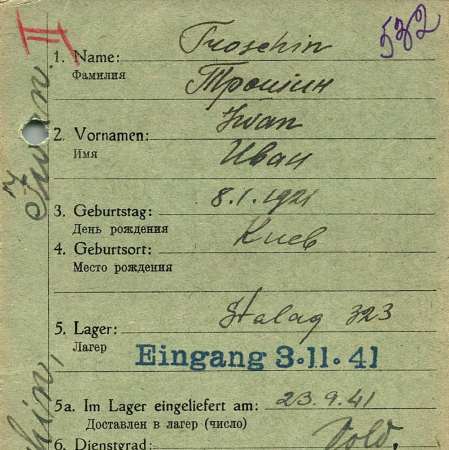 II
532
1. Name: Troschin
Фамилия Трошин
2. Vornamen: Iwan
Имя Иван
3. Geburtstag: 8.1.1921
День рождения
4. Geburtsort: Киев
Место рождения
5. Lager: Stalag 323
Лагер
Eingang 3.11.41
5a. Im Lager eingeliefert am: 23.9.41
Доставлен в лагер (число)
6. Dienstgrad: Sold.